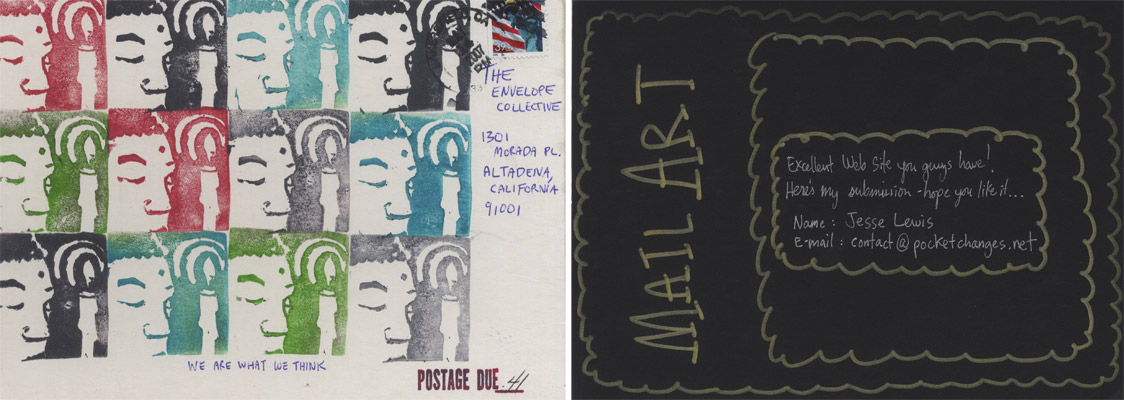 THE
ENVELOPE
COLLECTIVE
1301
MORADA PL.
ALTADENA,
CALIFORNIA
91001
WE ARE WHAT WE THINK
POSTAGE DUE .41
MAIL ART
Excellent Web Site you guys have!
Here's my submission - hope you like it...
Name : Jesse Lewis
E-mail : contact@pocketchanges.net